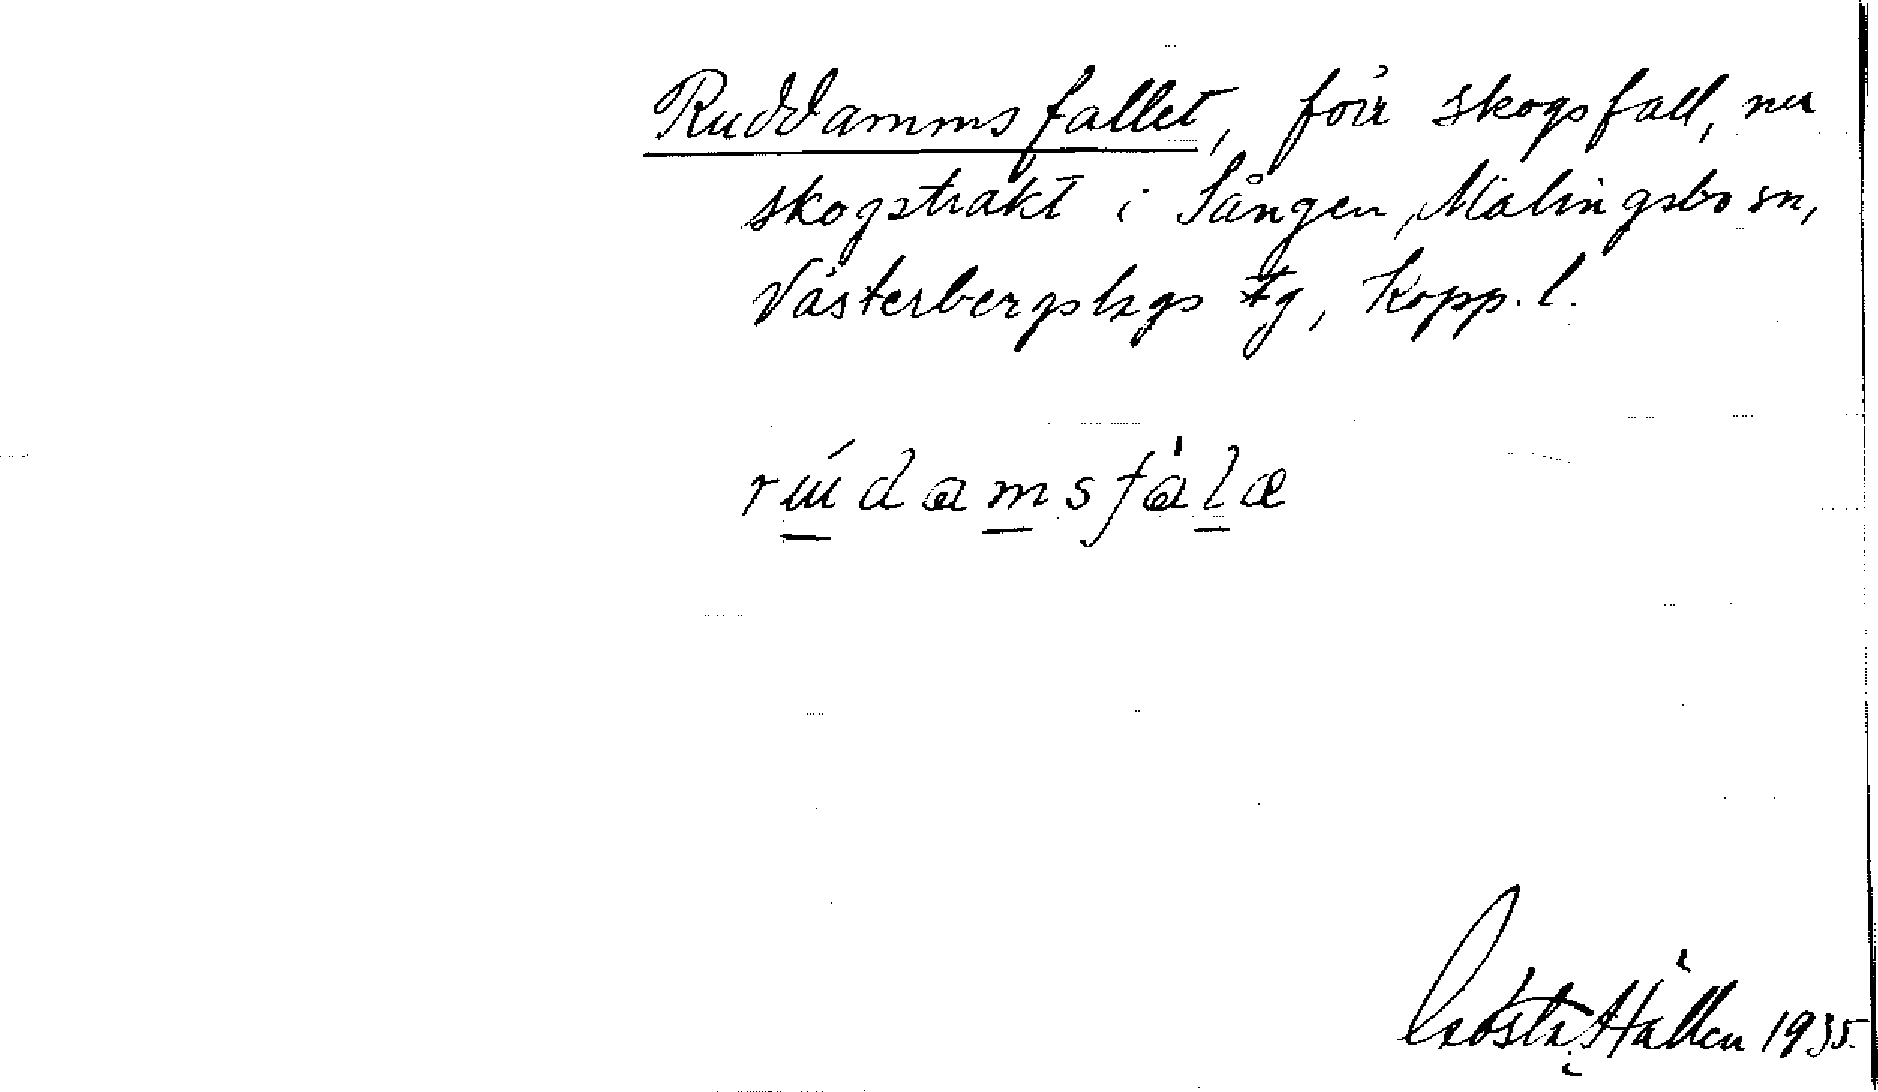 Ruddammsfallet, förr skogsfall, nu
skogstrakt i Sången, Malingsbo sn,
Västerbergslags tg, Kopp. l.
rúdamsfàlæ
Gösta Hällen 1935.